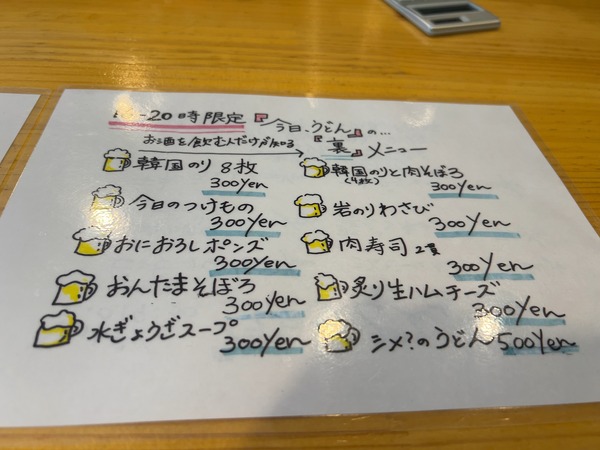 -20時限定『今日、うどん』の…
お酒を飲む人だけが知る『裏』メニュー
韓国のり 8枚
300Yen
今日のつけもの
300Yen
おにおろしポンズ
300Yen
おんたまそぼろ
300Yen
水ぎょうざスープ
300Yen
韓国のりと肉そぼろ
(4枚)
300Yen
岩のりわさび
300Yen
肉寿司 2貫
300Yen
炙り生ハムチーズ
300Yen
シメ?のうどん 500Yen